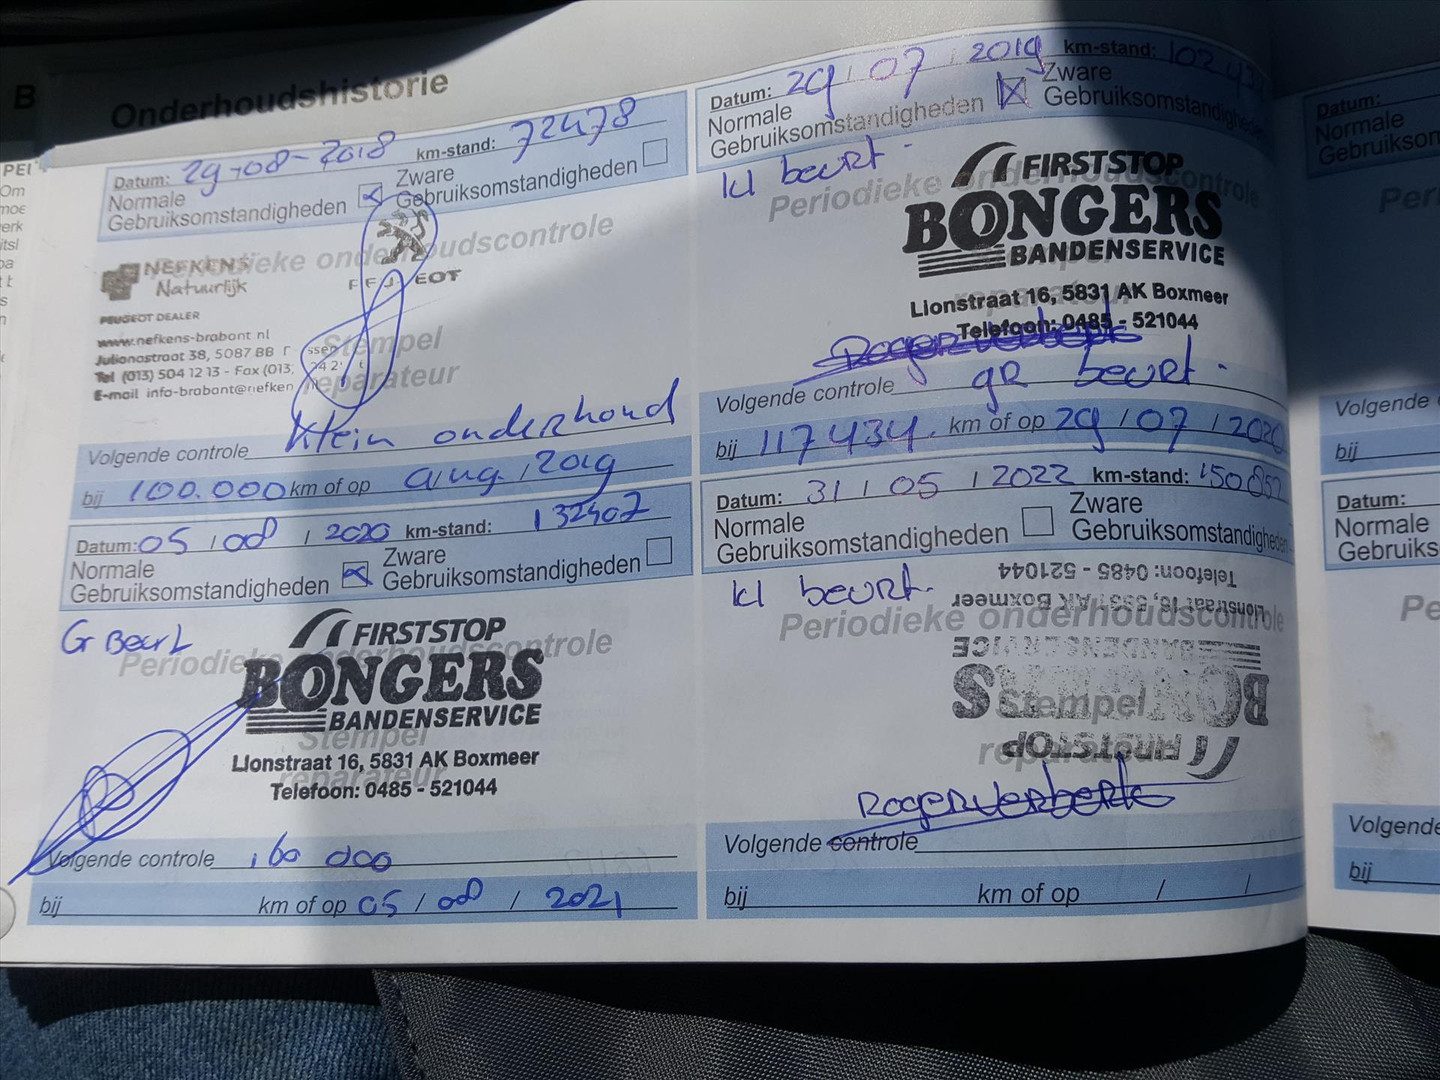 Onderhoudshistorie
Datum: 29-08-2018 km-stand: 72478
Normale
Gebruiksomstandigheden
Zware
Gebruiksomstandigheden
Periodieke onderhoudscontrole
NEFKENS
Natuurlijk
PEUGEOT
PEUGEOT DEALER
www.nefkens-brabant.nl
Julianastraat 38, 5087 BB
Tel (013) 504 12 13 - Fax (013)
E-mail info-brabant@nefken
Stempel
reparateur
Volgende controle Klein onderhoud
bij 100.000 km of op aug. 2019
Datum: 29 / 07 / 2019 km-stand:
Normale
Gebruiksomstandigheden
Zware
Gebruiksomstandigheden
kl beurt.
Periodieke onderhoudscontrole
FIRSTSTOP
BONGERS
BANDENSERVICE
Lionstraat 16, 5831 AK Boxmeer
Telefoon: 0485 - 521044
reparateur
Volgende controle gr beurt.
bij 117434. km of op 29 / 07 / 2020
Datum: 05 / 08 / 2020 km-stand: 132402
Normale
Gebruiksomstandigheden
Zware
Gebruiksomstandigheden
G Beurt
Periodieke onderhoudscontrole
FIRSTSTOP
BONGERS
BANDENSERVICE
Stempel
Lionstraat 16, 5831 AK Boxmeer
reparateur
Telefoon: 0485 - 521044
Volgende controle 160 000
bij km of op 05 / 08 / 2021
Datum: 31 / 05 / 2022 km-stand: 150852
Normale
Gebruiksomstandigheden
Zware
Gebruiksomstandigheden
kl beurt.
Telefoon: 0485 - 521044
Lionstraat 16, 5831 AK Boxmeer
Periodieke onderhoudscontrole
BANDENSERVICE
BONGERS
Stempel
FIRSTSTOP
reparateur
Volgende controle
bij km of op / /
Datum:
Normale
Volgende
bij
Datum:
Normale
Volgende
bij